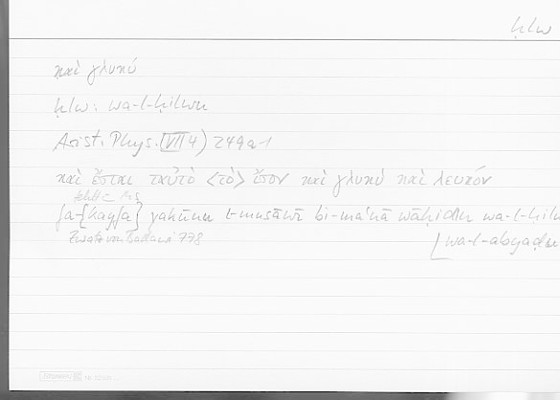 ḥlw
καὶ γλυκύ
ḥlw: wa-l-ḥilwu
Arist. Phys. VII 4) 249a1
καὶ ἔσται ταὐτὸ <τὸ> ἴσον καὶ γλυκὺ καὶ λευκόν
fehlt
fa-[kayfa] yakūnu l-musāwī bi-maʿnā wāḥidin wa-l-ḥilw
Zusatz von Badawi 778
[wa-l-abyaḍu